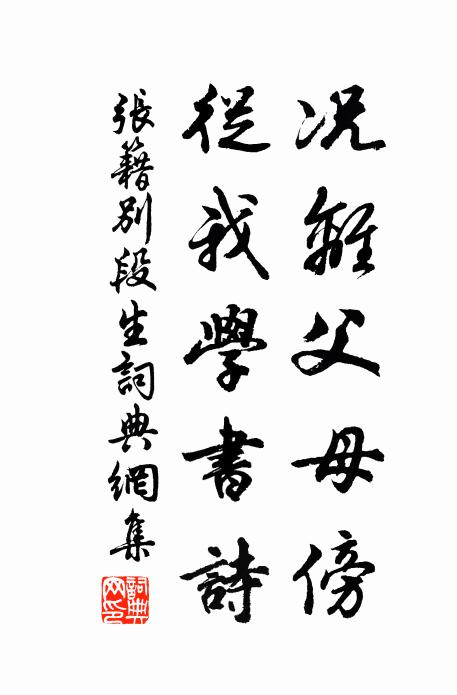 况離父母傍
從我學書詩
張籍別段生詞典網集
詞典网印